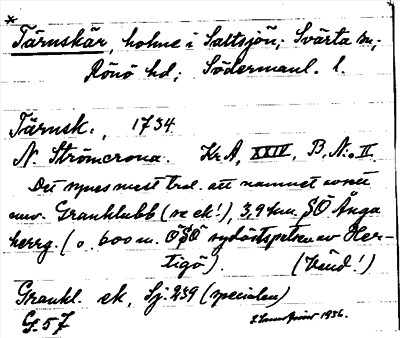 *
Tärnskär, holme i Saltsjön; Svärta sn;
Rönö hd; Södermanl. l.
Tärnsk., 1734.
N. Strömcrona. Kr.A, XXIV, B. N:o II
Det synes mest trol. att namnet avsett
nuv. Granklubb (se ek!), 3,9 km. SÖ Ånga
herrg. (o. 600 m. ÖSÖ sydöstspetsen av Her-
tigö). (Känd!)
Grankl. ek, Sj: 239 (specialen)
G. 57 1936.